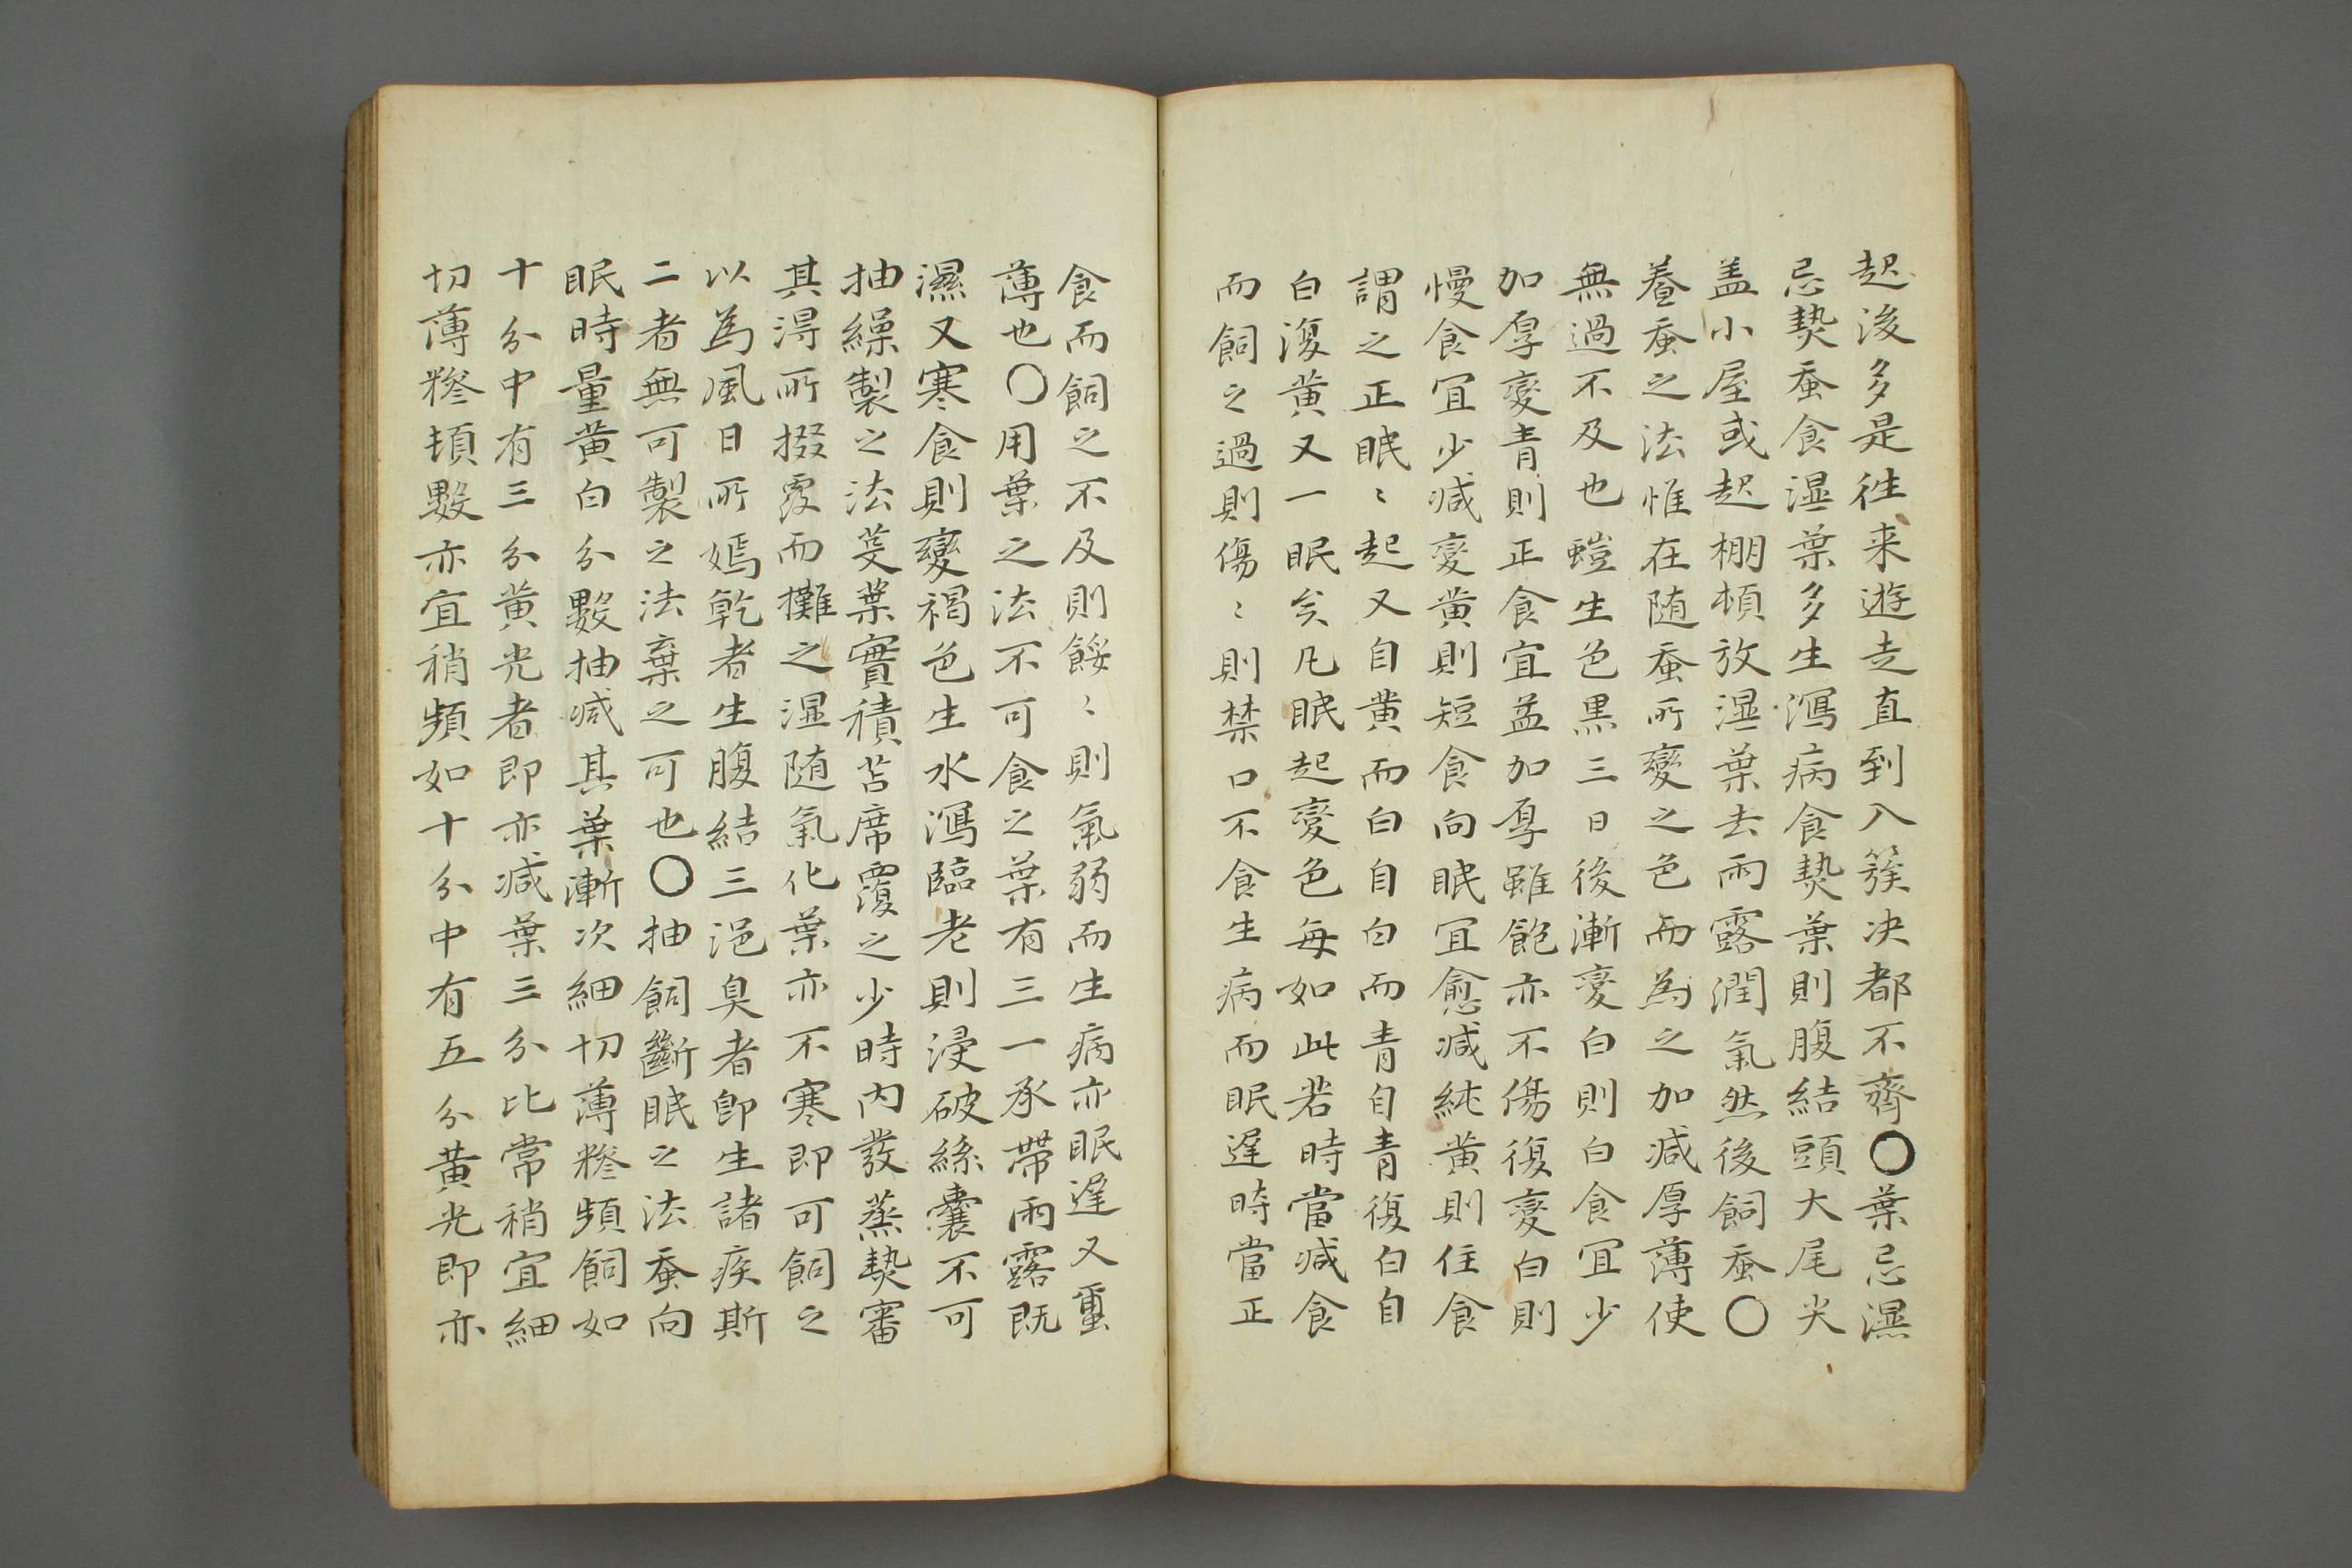 起後多是徃来遊走直到入簇决都不齊〇葉忌濕
忌𤍠蚕食湿葉多生瀉病食𤍠葉則腹結頭大尾尖
盖小屋或起棚頓放湿葉去雨露潤氣然後飼蚕〇
養蚕之法惟在随蚕所變之色而為之加减厚薄使
無過不及也螘生色黒三日後漸変白則白食冝少
加厚変青則正食宜益加厚雖飽亦不傷復変白則
慢食冝少减変黄則短食向眠冝愈减純黄則住食
謂之正眠〻起又自黄而白自白而青自青復白自
白復黄又一眠矣凡眠起変色每如此若時當减食
而飼之過則傷〻則禁口不食生病而眠遅時當正
食而飼之不及則餒〻則氣弱而生病亦眠遅又蠒
薄也〇用葉之法不可食之葉有三一承帶雨露既
濕又寒食則變褐色生水瀉臨老則浸破絲囊不可
抽繰製之法芟葉實積苫席覆之少時内發蒸𤍠審
其淂所掇覆而攤之湿随氣化葉亦不寒即可飼之
以為風日所嫣乾者生腹結三浥臭者即生諸疾斯
二者無可製之法棄之可也〇抽飼斷眠之法蚕向
眠時量黄白分數抽减其葉漸次細切薄糝頻飼如
十分中有三分黄光者即亦减葉三分比常稍宜細
切薄糝頓數亦宜稍頻如十分中有五分黄光即亦